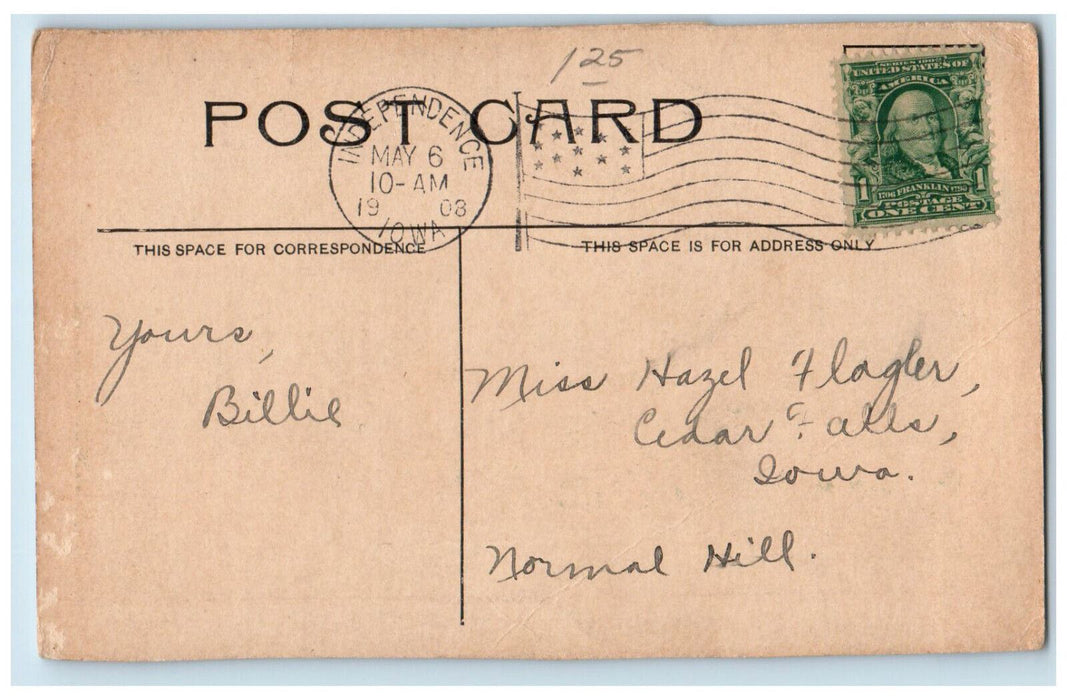 125
POST CARD
INDEPENDENCE
MAY 6
10-AM
1908
IOWA
SERIES 1902
UNITED STATES OF
AMERICA
1706 FRANKLIN 1790
1 1
POSTAGE
ONE CENT
THIS SPACE FOR CORRESPONDENCE
THIS SPACE IS FOR ADDRESS ONLY
Yours,
Billie
Miss Hazel Flagler,
Cedar Falls,
Iowa.
Normal Hill.